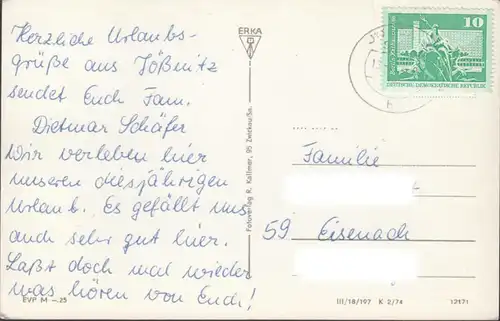 Herzliche Urlaubs-
grüße aus Jößnitz
sendet Euch Fam.
Dietmar Schäfer
Wir verleben hier
unseren diesjährigen
Urlaub. Es gefällt uns
auch sehr gut hier.
Laßt doch mal wieder
was hören von Euch!
EVP M -.25
ERKA
Fotoverlag R. Kallmer, 95 Zwickau/Sa.
10
DEUTSCHE DEMOKRATISCHE REPUBLIK
Familie
59 Eisenach
III/18/197 K 2/74
12171